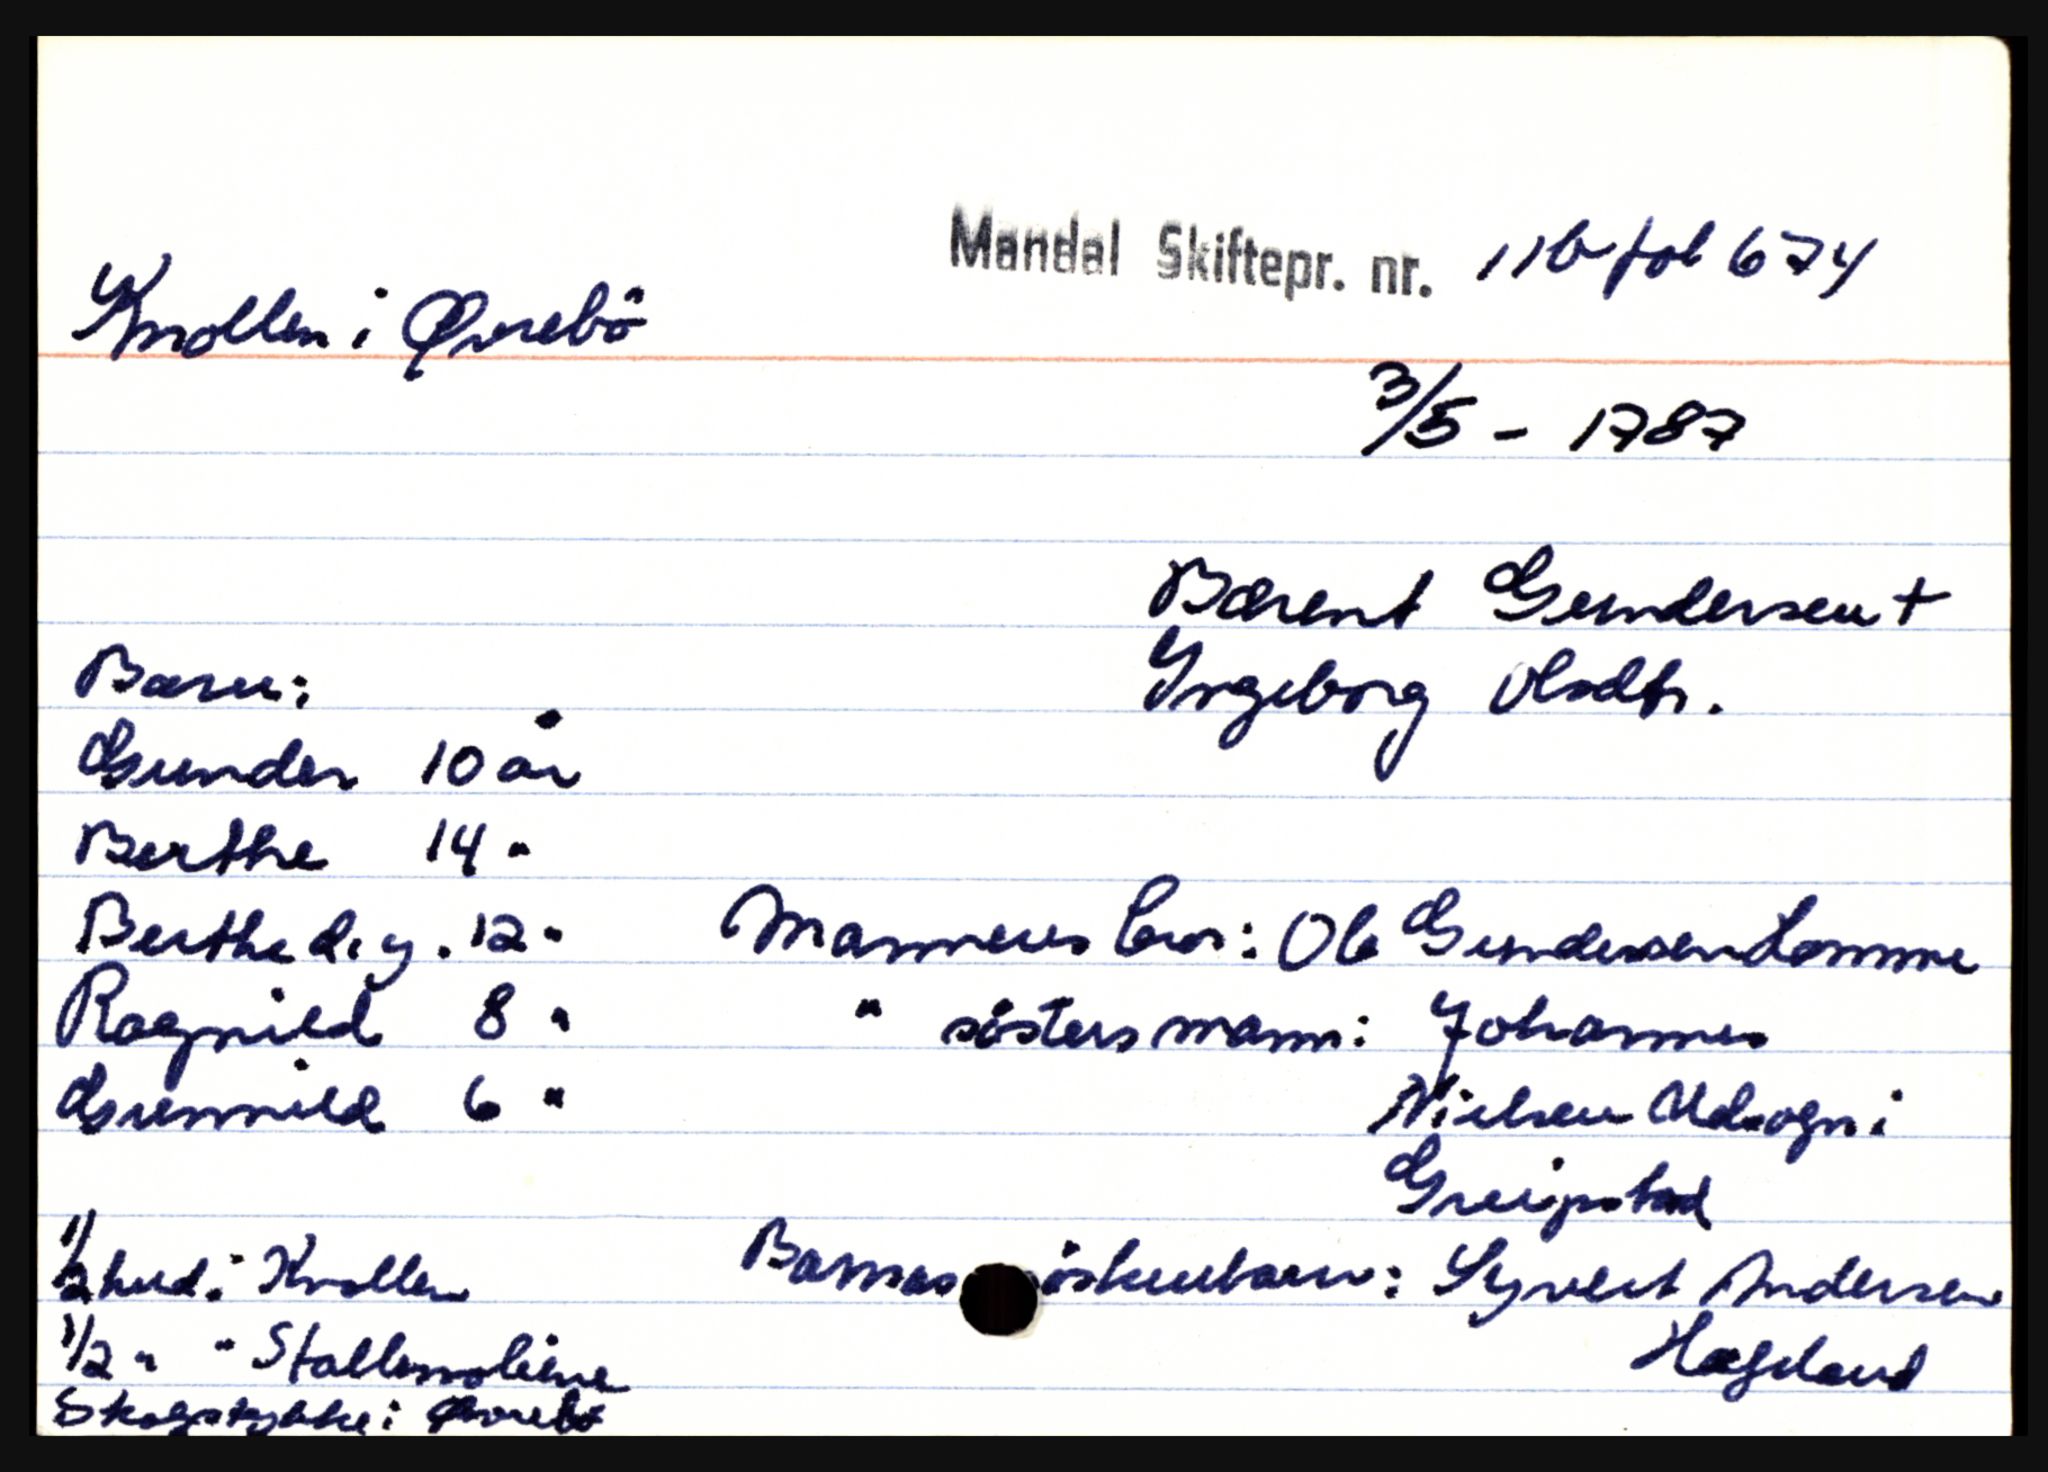 Mandal Skiftepr. nr. 11b fol 674
Knollen i Øvrebö
3/5 - 1787
Bærent Gundersen +
Yngeborg Olsdtr.
Barn:
Gunder 10 år
Berthe 14 "
Berthe d. y. 12 "
Mannens bror: Ole Gundersen Lomme
Ragnild 8 "
" sösters mann: Johannes
Gunnild 6 "
Nielsen Udsogn i
Greipstad
1/2 hud i Knollen
Barnas söskenbarn: Syvert Andersen
Hægeland
1/2 " "
Skogstykke i Øvrebö